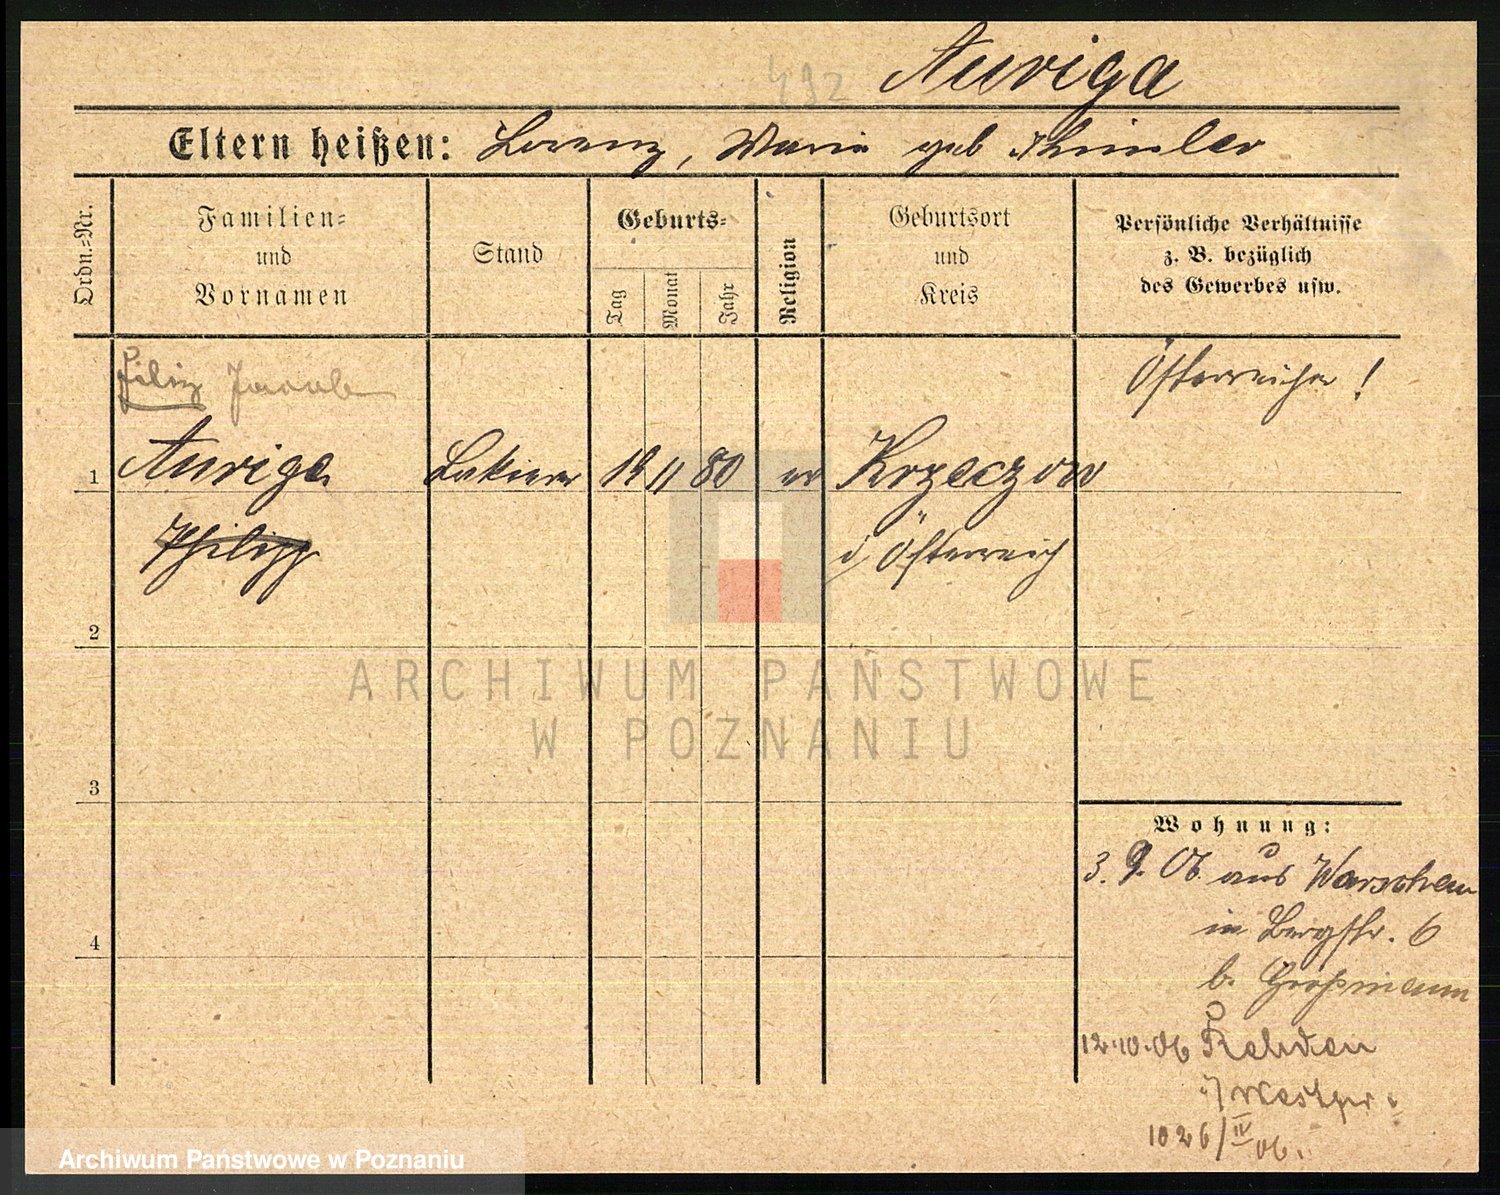 492 Auriga
Eltern heißen: Lorenz, Marie geb
Ordn.=Nr.
Familien=
und
Vornamen
Stand
Geburts=
Tag
Monat
Jahr
Religion
Geburtsort
und
Kreis
Persönliche Verhältnisse
z. B. bezüglich
des Gewerbes usw.
Filip Jacob
Österreicher!
1 Auriga 11 80 Krzeczow
Philipp
i/ Österreich
2
ARCHIWUM PAŃSTWOWE
W POZNANIU
3
Wohnung:
3. 9. 06 aus Warschau
in Bergstr. 6
4
b. Großmann
12.10.06 Rehden
i/ Westpr.
1026/IV 06.
Archiwum Państwowe w Poznaniu